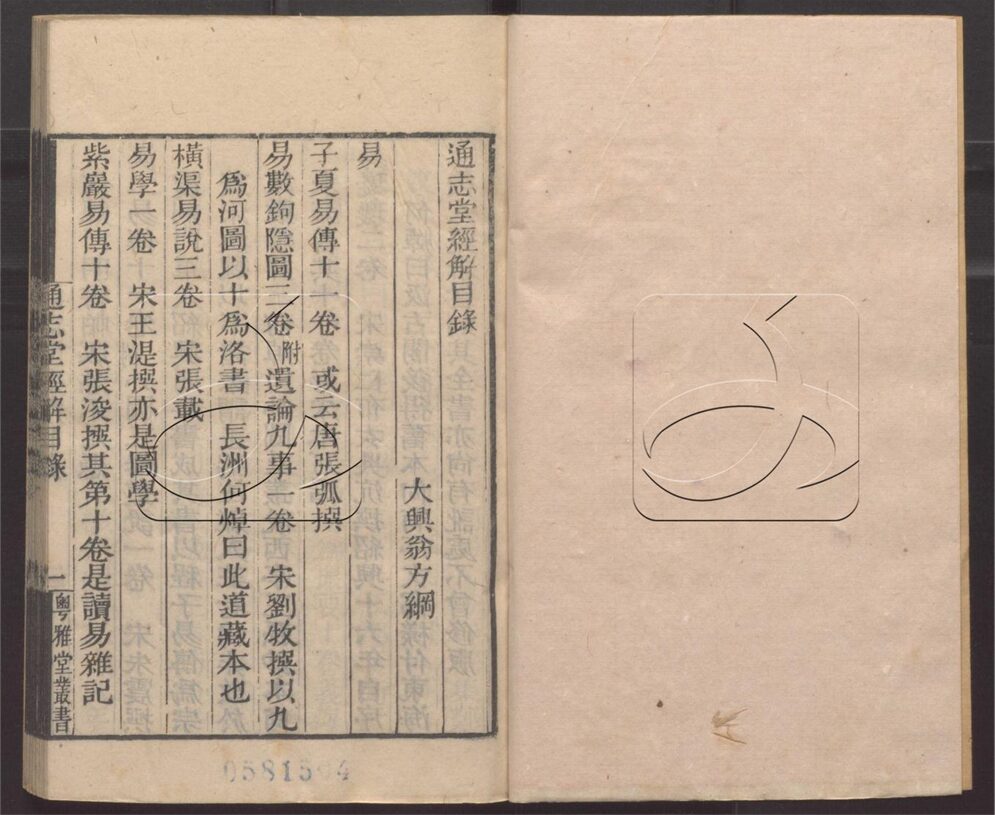 通志堂經解目錄
大興翁方綱
易
子夏易傳十一卷 或云唐張弧撰
易數鉤隱圖三卷附遺論九事一卷 宋劉牧撰以九
為河圖以十為洛書 長洲何焯曰此道藏本也
橫渠易說三卷 宋張載
易學一卷 宋王湜撰亦是圖學
紫巖易傳十卷 宋張浚撰其第十卷是讀易雜記
通志堂經解目錄 一 粵雅堂叢書